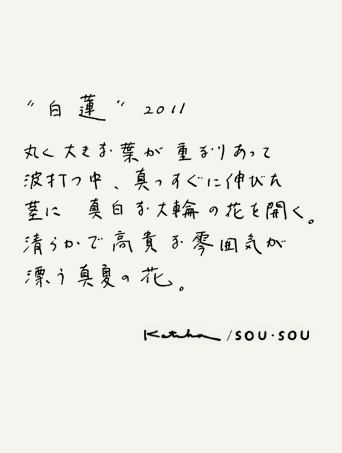 “白蓮” 2011
丸く大きな葉が重なりあって
波打つ中、真っすぐに伸びた
茎に 真白な大輪の花を開く。
清らかで高貴な雰囲気が
漂う真夏の花。
Katsuji /SOU・SOU